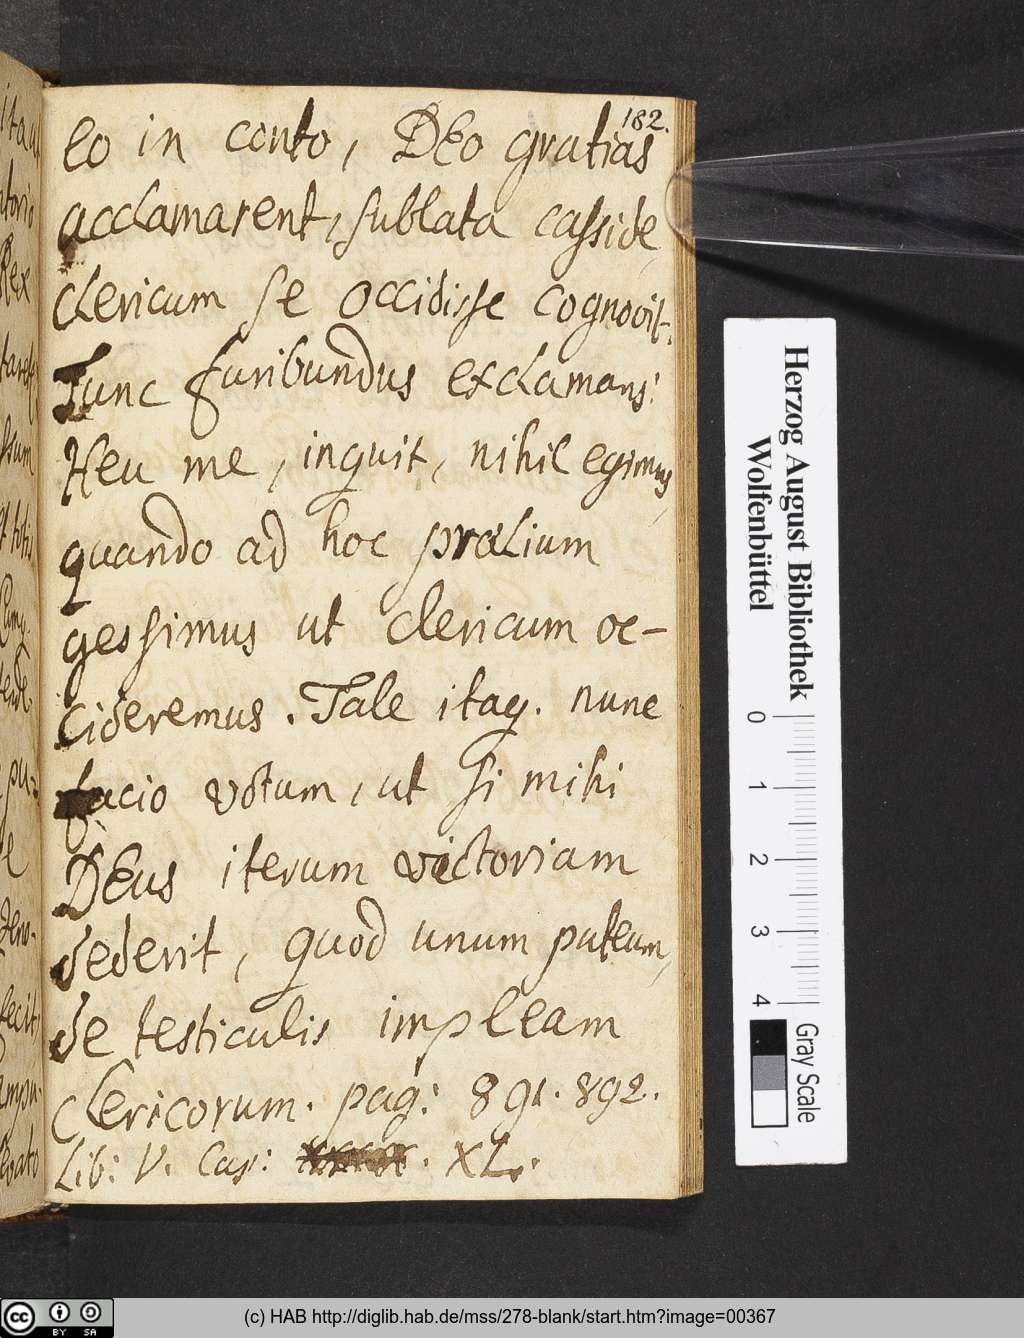 182.
eo in conto, DEo gratias
acclamarent, sublata casside,
clericum se occidisse cognovit.
Tunc furibundus exclamans:
Heu me, inquit, nihil egimus,
quando ad hoc prælium
gessimus ut clericum oc-
cideremus. Tale itaq. nunc
facio votum, ut si mihi
DEus iterum victoriam
dederit, quod unum puteum,
de testiculis impleam
clericorum. pag: 891. 892.
Lib: V. Cap: XL.
Herzog August Bibliothek
Wolfenbüttel
0 1 2 3 4
Gray Scale
(c) HAB http://diglib.hab.de/mss/278-blank/start.htm?image=00367
cc BY SA